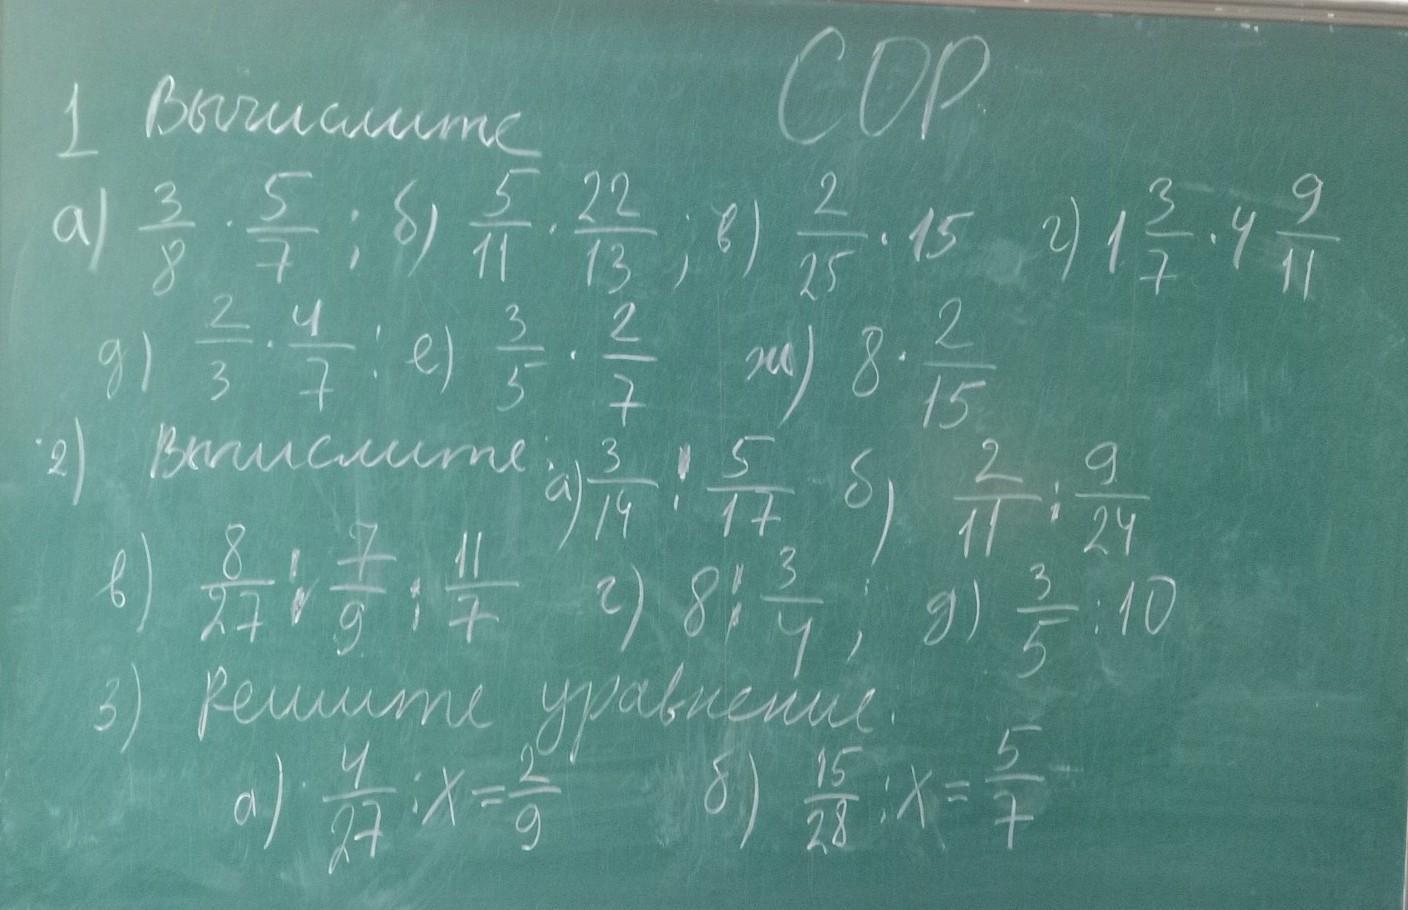 СОР
1 Вычислите
а) 3/8 · 5/7 ; б) 5/11 · 22/13 ; в) 2/25 · 15 г) 1 3/7 · 4 9/11
д) 2/3 · 4/7 ; е) 3/5 · 2/7 ж) 8 · 2/15
2) Вычислите: а) 3/14 : 5/17 б) 2/11 : 9/24
в) 8/27 : 7/9 : 11/7 г) 8 : 3/4 ; д) 3/5 : 10
3) Решите уравнение.
а) 4/27 : x = 2/9 б) 15/28 : x = 5/7